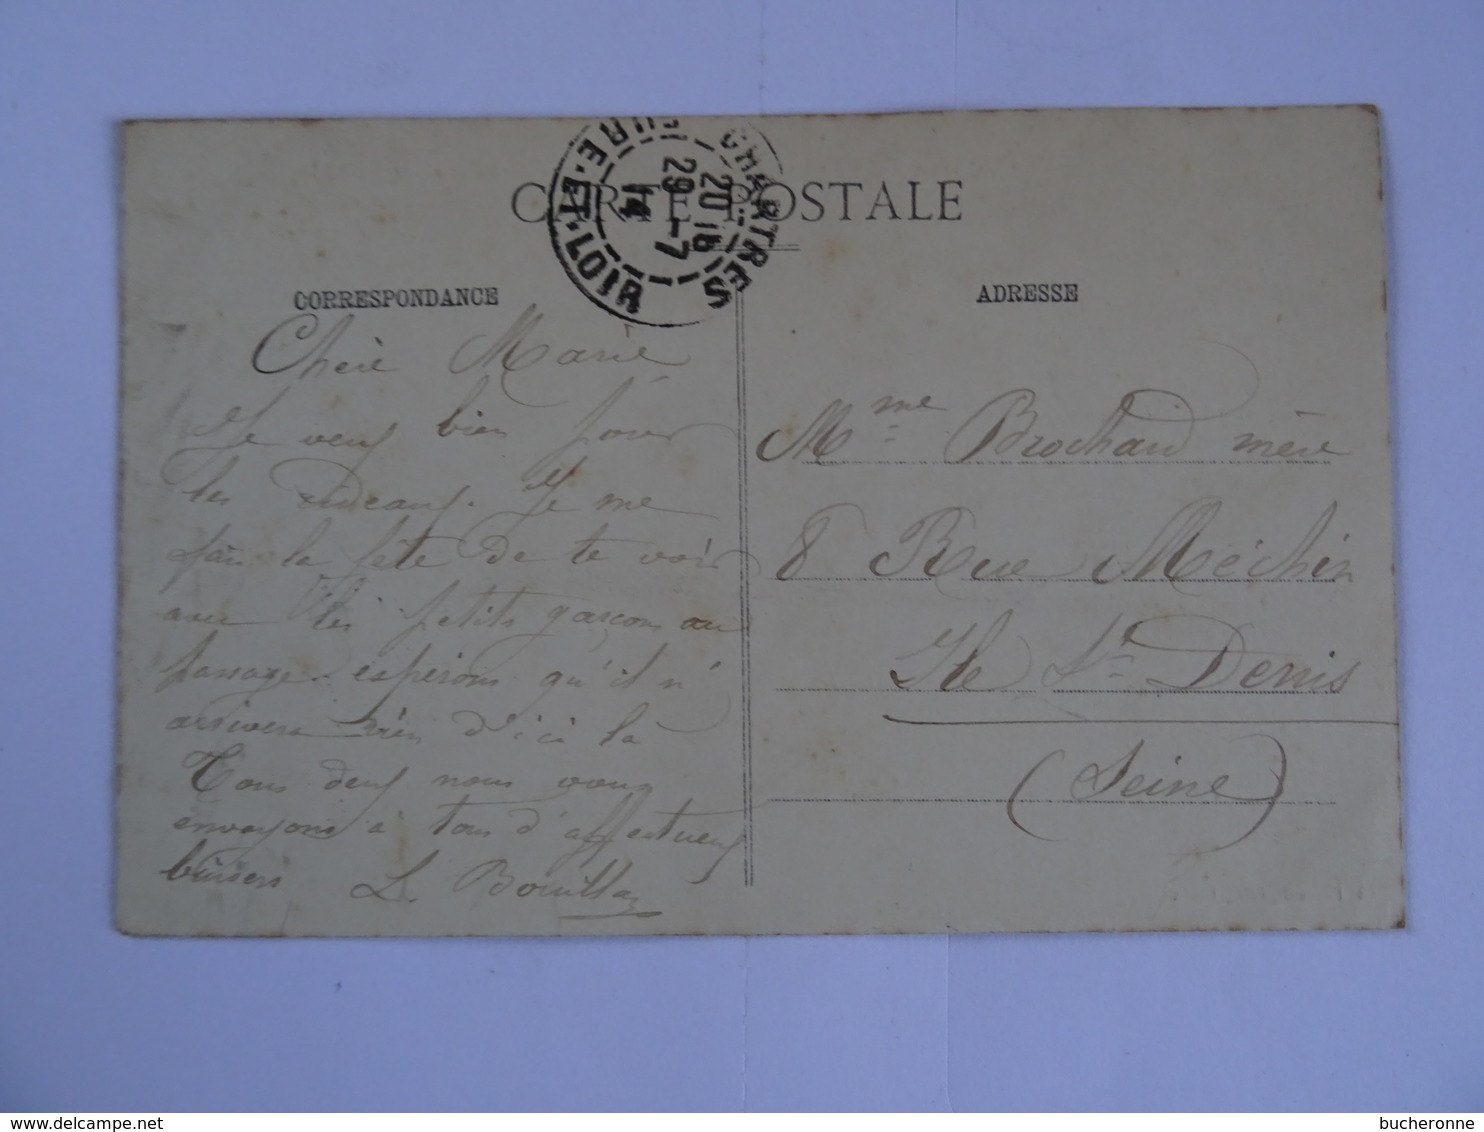 CARTE POSTALE
CHARTRES
EURE-ET-LOIR
20 15
29-7
14
CORRESPONDANCE
Chère Marie
Je veux bien pour
les rideaux. Je me
fais la fete de te voir
avec les petits garçons au
passage. espérons qu'il n'
arrivera rien d'ici là
Tous deux nous vous
envoyons à tous d'affectueux
baisers L. Bouillon
ADRESSE
Mme Brochard mère
8 Rue Méchin
Ile St Denis
(Seine)
www.delcampe.net
bucheronne